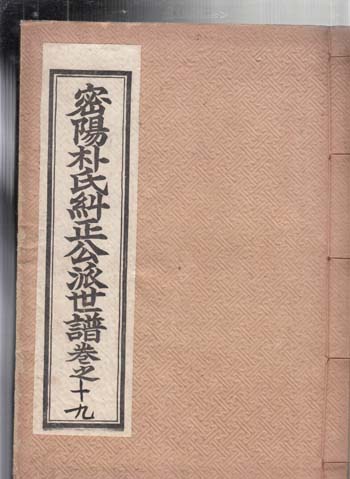 密陽朴氏糾正公派世譜卷之十九